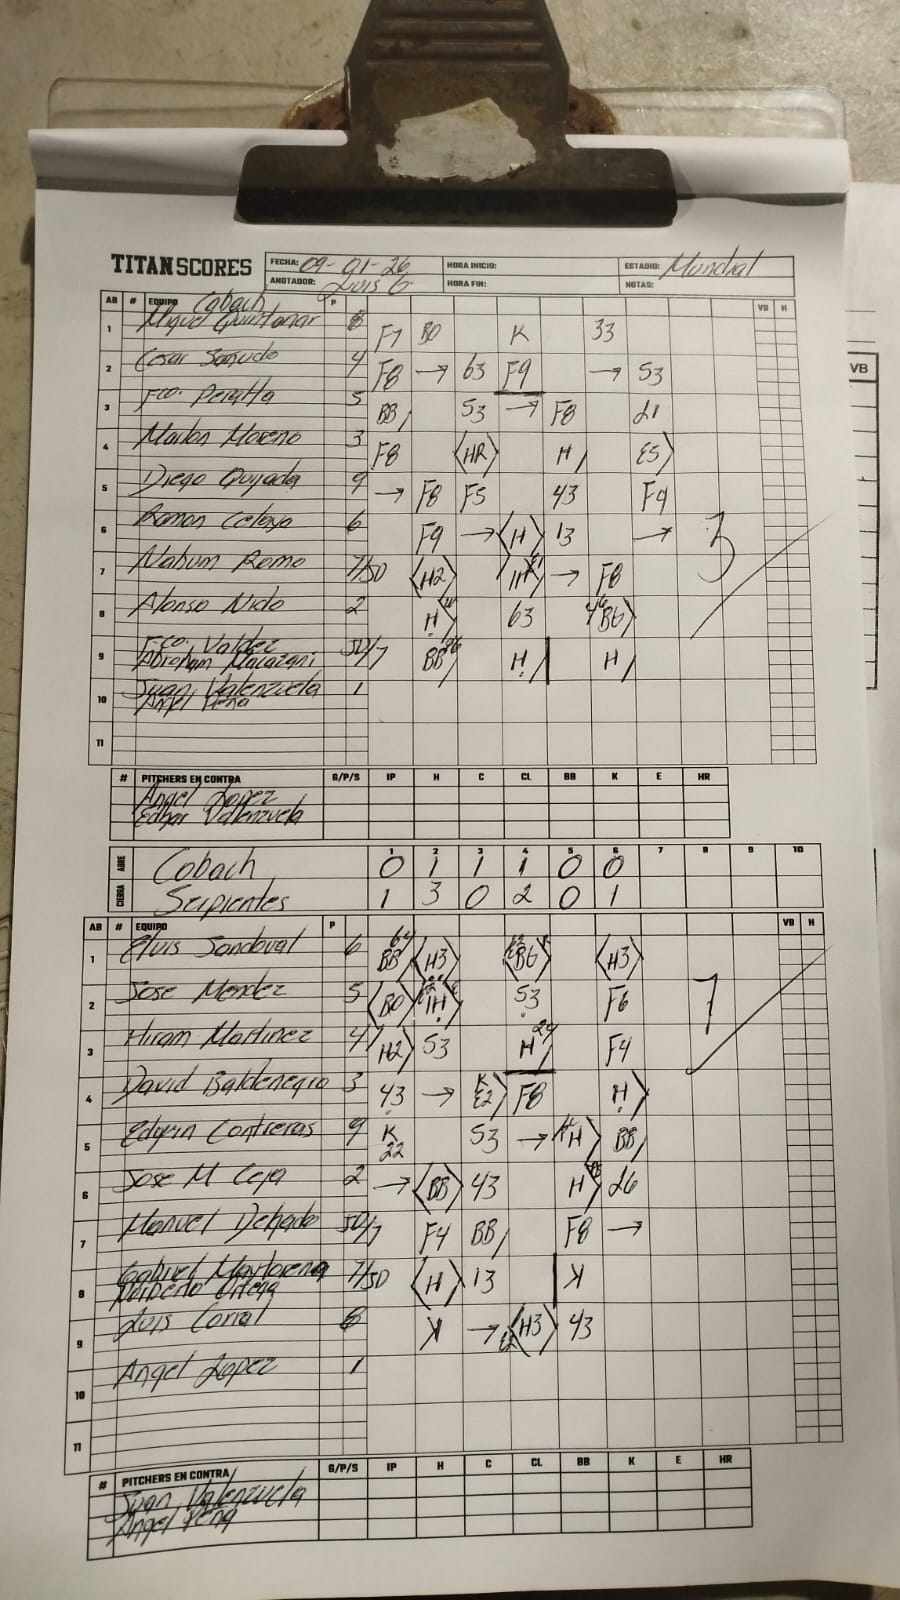 TITAN SCORES
FECHA: 09-01-26 HORA INICIO: ESTADIO: Mundial
ANOTADOR: Luis G HORA FIN: NOTAS:
AB # EQUIPO Cobach P VB H
1 Miguel Quintanar 8 F7 BO K 33
2 Cesar Sañudo 4 F8 → 63 F9 → 53
3 Fco. Peralta 5 BB 53 → F8
4 Marlon Moreno 3 F8 HR H E5
5 Diego Quijada 9 → F8 F5 43 F4
6 Ramon Celaya 6 F9 → H 13 → 3
7 Nahum Romo 7/SD H2 → F8
8 Alonso Nido 2 H 63
9 Fco. Valdez SD/7 BB H H
Abraham
10 Juan Valenzuela 1
Angel Peña
11
# PITCHERS EN CONTRA G/P/S IP H C CL BB K E HR
Angel Lopez
Edgar Valenzuela
1 2 3 4 5 6 7 8 9 10
ABRE Cobach 0 1 1 1 0 0
CIERRA Serpientes 1 3 0 2 0 1
AB # EQUIPO P VB H
1 Eluis Sandoval 6 BB H3 H3
2 Jose Mendez 5 BO 53 F6 7
3 Hiram Martinez 4/ H2 53 H F4
4 David Baldenegro 3 43 → K E2 F8 H
5 Edwin Contreras 9 K 22 53 → BB
6 Jose M Ceja 2 → BB 43 H
7 Manuel Delgado SD/7 F4 BB F8 →
8 Gabriel Maytorena 7/SD H 13 K
Norberto Ortega
9 Luis Corral 8 K → H3 43
10 Angel Lopez 1
11
# PITCHERS EN CONTRA G/P/S IP H C CL BB K E HR
Juan Valenzuela
Angel Peña
VB